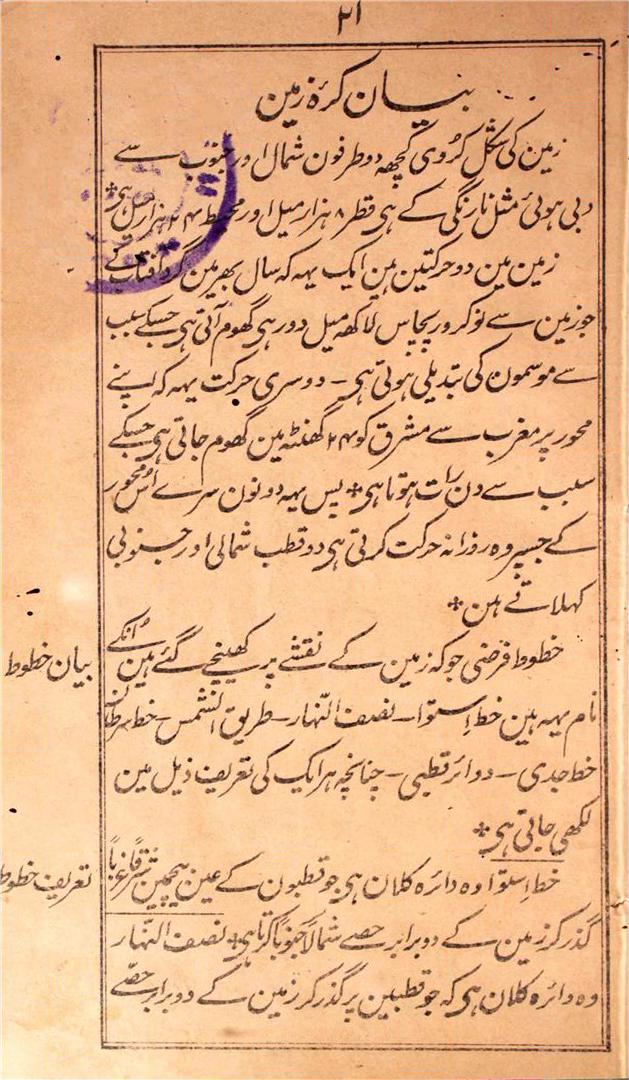 ۲۱
بیان کرۂ زمین
زمین کی شکل کروی کچھہ دو طرفون شمال اور جنوب سے
دبی ہوئی مثل نارنگی کے ہی قطر ۸ ہزار میل اور محیط ۲۴ ہزار میل ہی
زمین مین دو حرکتین ہین ایک یہہ کہ سال بھر مین گرد آفتاب کے
جو زمین سے نو کرور پچاس لاکھہ میل دور ہی گھوم آتی ہی جسکے سبب
سے موسمون کی تبدیلی ہوتی ہی - دوسری حرکت یہہ کہ اپنے
محور پر مغرب سے مشرق کو ۲۴ گھنٹہ مین گھوم جاتی ہی جسکے
سبب سے دن رات ہوتا ہی * پس یہہ دونون سرے اُس محور
کے جسپر وہ روزانہ حرکت کرتی ہی دو قطب شمالی اور جنوبی
کہلاتے ہین *
بیان خطوط
خطوط فرضی جو کہ زمین کے نقشے پر کھینچے گئے ہین اُنکے
نام یہہ ہین خط اِستوا - نصف النّہار - طریق الشمس - خط سرطان
خط جدی - دوائر قطبی - چنانچہ ہر ایک کی تعریف ذیل مین
لکھی جاتی ہی *
تعریف خطوط
خط اِستوا وہ دائرہ کلان ہی جو قطبون کے عین بیچ مین شرقاً غرباً
گذر کر زمین کے دو برابر حصے شمالاً جنوباً کرتا ہی * نصف النّہار
وہ دائرہ کلان ہی کہ جو قطبین پر گذر کر زمین کے دو برابر حصّے